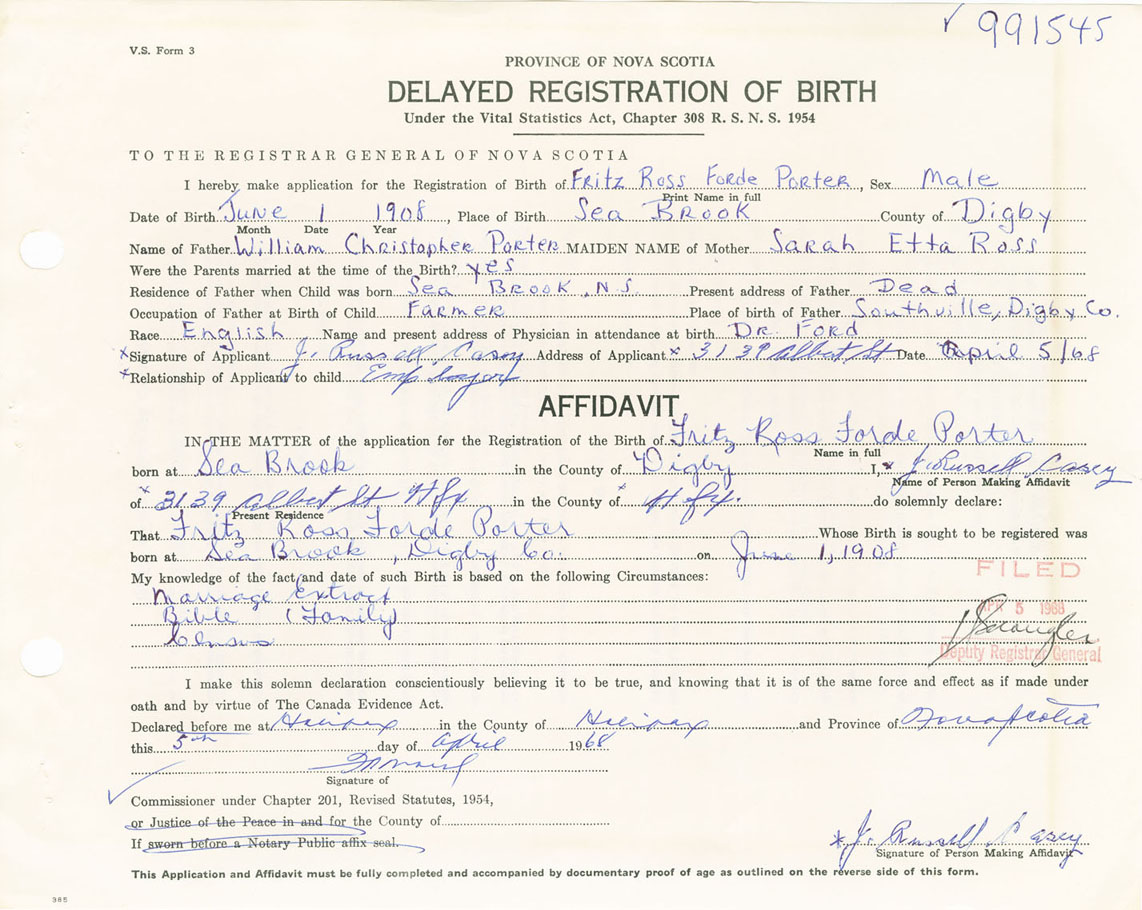 ✓ 991545
V.S. Form 3
PROVINCE OF NOVA SCOTIA
DELAYED REGISTRATION OF BIRTH
Under the Vital Statistics Act, Chapter 308 R. S. N. S. 1954
TO THE REGISTRAR GENERAL OF NOVA SCOTIA
I hereby make application for the Registration of Birth of Fritz Ross Forde Porter, Sex Male
Print Name in full
Date of Birth June 1 1908, Place of Birth Sea Brook County of Digby
Month Date Year
Name of Father William Christopher Porter MAIDEN NAME of Mother Sarah Etta Ross
Were the Parents married at the time of the Birth? yes
Residence of Father when Child was born Sea Brook, N.S. Present address of Father Dead
Occupation of Father at Birth of Child Farmer Place of birth of Father Southville, Digby Co.
Race English Name and present address of Physician in attendance at birth Dr. Ford
*Signature of Applicant J. Russell Casey Address of Applicant * 3139 Albert St Date April 5/68
*Relationship of Applicant to child
AFFIDAVIT
IN THE MATTER of the application for the Registration of the Birth of Fritz Ross Forde Porter
Name in full
born at Sea Brook in the County of Digby I, * J. Russell Casey
Name of Person Making Affidavit
of * 3139 Albert St Hfx in the County of * Hfx. do solemnly declare:
Present Residence
That Fritz Ross Forde Porter Whose Birth is sought to be registered was
born at Sea Brook, Digby Co. on June 1, 1908
My knowledge of the fact and date of such Birth is based on the following Circumstances:
FILED
Marriage Extract
APR 5 1968
Bible (Family)
Census
Deputy Registrar General
I make this solemn declaration conscientiously believing it to be true, and knowing that it is of the same force and effect as if made under
oath and by virtue of The Canada Evidence Act.
Declared before me at Halifax in the County of Halifax and Province of Nova Scotia
this 5th day of April 1968
Signature of
✓ Commissioner under Chapter 201, Revised Statutes, 1954,
or Justice of the Peace in and for the County of
If sworn before a Notary Public affix seal.
* J. Russell Casey
Signature of Person Making Affidavit
This Application and Affidavit must be fully completed and accompanied by documentary proof of age as outlined on the reverse side of this form.
385